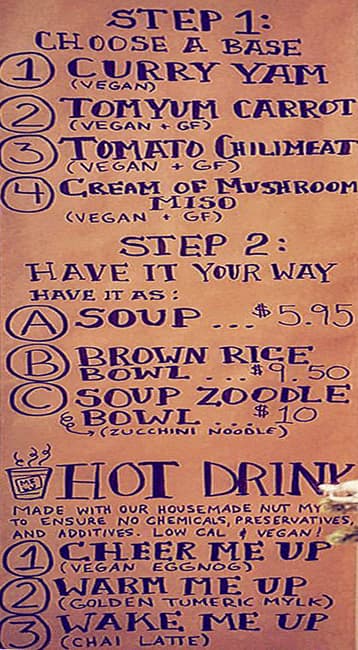 STEP 1:
CHOOSE A BASE
1 CURRY YAM
(VEGAN)
2 TOMYUM CARROT
(VEGAN + GF)
3 TOMATO CHILIMEAT
(VEGAN + GF)
4 CREAM OF MUSHROOM
MISO
(VEGAN + GF)
STEP 2:
HAVE IT YOUR WAY
HAVE IT AS:
A SOUP ... $5.95
B BROWN RICE
BOWL ... $9.50
C SOUP ZOODLE
BOWL ... $10
(ZUCCHINI NOODLE)
HOT DRINK
MADE WITH OUR HOUSEMADE NUT MY
TO ENSURE NO CHEMICALS, PRESERVATIVES,
AND ADDITIVES. LOW CAL & VEGAN!
1 CHEER ME UP
(VEGAN EGGNOG)
2 WARM ME UP
(GOLDEN TUMERIC MYLK)
3 WAKE ME UP
(CHAI LATTE)